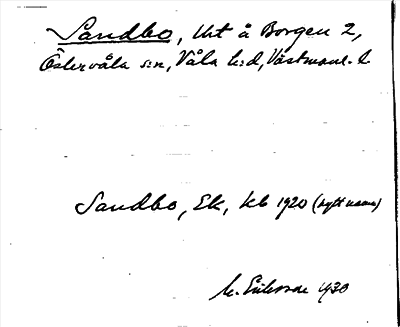 Sandbo, lht å Borgen 2,
Östervåla sn, Våla hd, Västmanl. l
Sandbo, Ek, kb 1920 (nytt namn)
M. Eriksson 1930